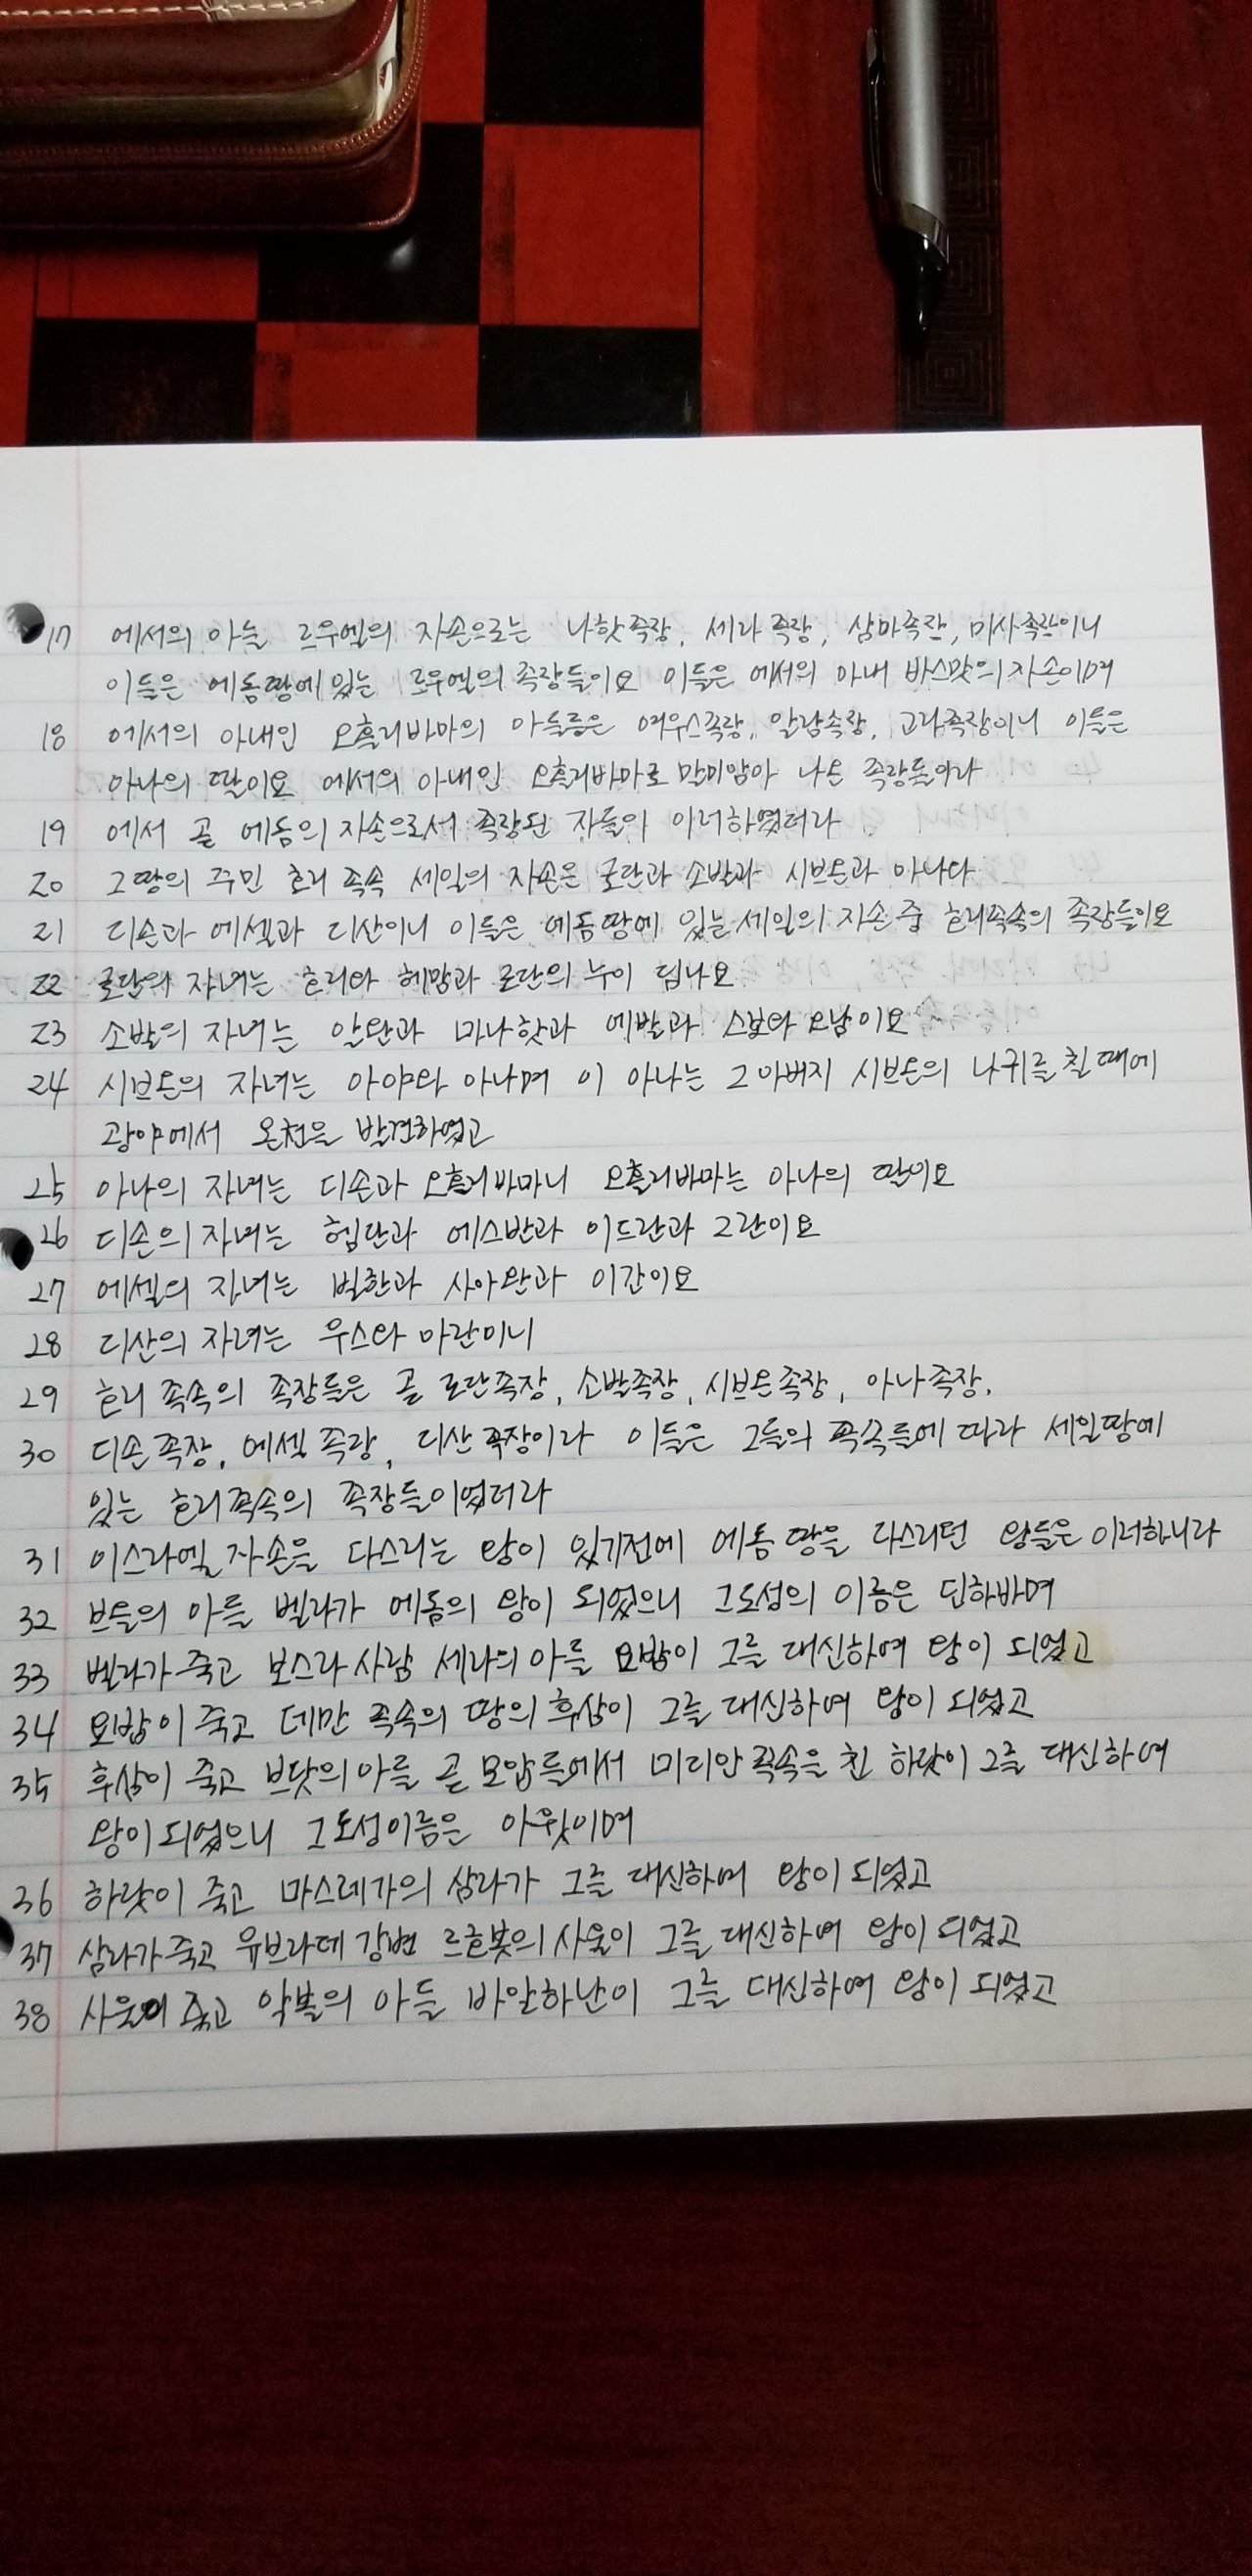 17 에서의 아들 르우엘의 자손으로는 나핫족장, 세라족장, 삼마족장, 미사족장이니
이들은 에돔땅에 있는 르우엘의 족장들이요 이들은 에서의 아내 바스맛의 자손이며
18 에서의 아내인 오홀리바마의 아들들은 여우스족장, 얄람족장, 고라족장이니 이들은
아나의 딸이요 에서의 아내인 오홀리바마로 말미암아 나온 족장들이라
19 에서 곧 에돔의 자손으로서 족장된 자들이 이러하였더라
20 그 땅의 주민 호리 족속 세일의 자손은 로단과 소발과 시브온과 아나다
21 디손과 에셀과 디산이니 이들은 에돔 땅에 있는 세일의 자손 중 호리족속의 족장들이요
22 로단의 자녀는 호리와 헤맘과 로단의 누이 딤나요
23 소발의 자녀는 알완과 마나핫과 에발과 스보와 오남이요
24 시브온의 자녀는 아야와 아나며 이 아나는 그 아버지 시브온의 나귀를 칠 때에
광야에서 온천을 발견하였고
25 아나의 자녀는 디손과 오홀리바마니 오홀리바마는 아나의 딸이요
26 디손의 자녀는 헴단과 에스반과 이드란과 그란이요
27 에셀의 자녀는 빌한과 사아완과 아간이요
28 디산의 자녀는 우스와 아란이니
29 호리 족속의 족장들은 곧 로단족장, 소발족장, 시브온족장, 아나족장,
30 디손 족장, 에셀 족장, 디산 족장이라 이들은 그들의 족속들에 따라 세일땅에
있는 호리족속의 족장들이었더라
31 이스라엘 자손을 다스리는 왕이 있기전에 에돔 땅을 다스리던 왕들은 이러하니라
32 브올의 아들 벨라가 에돔의 왕이 되었으니 그도성의 이름은 딘하바며
33 벨라가 죽고 보스라 사람 세라의 아들 요밥이 그를 대신하여 왕이 되었고
34 요밥이 죽고 데만 족속의 땅의 후삼이 그를 대신하여 왕이 되었고
35 후삼이 죽고 브닷의 아들 곧 모압들에서 미디안 족속을 친 하닷이 그를 대신하여
왕이 되었으니 그 도성이름은 아윗이며
36 하닷이 죽고 마스레가의 삼라가 그를 대신하여 왕이 되었고
37 삼라가 죽고 유브라데 강변 르호봇의 사울이 그를 대신하여 왕이 되었고
38 사울이 죽고 악볼의 아들 바알하난이 그를 대신하여 왕이 되었고